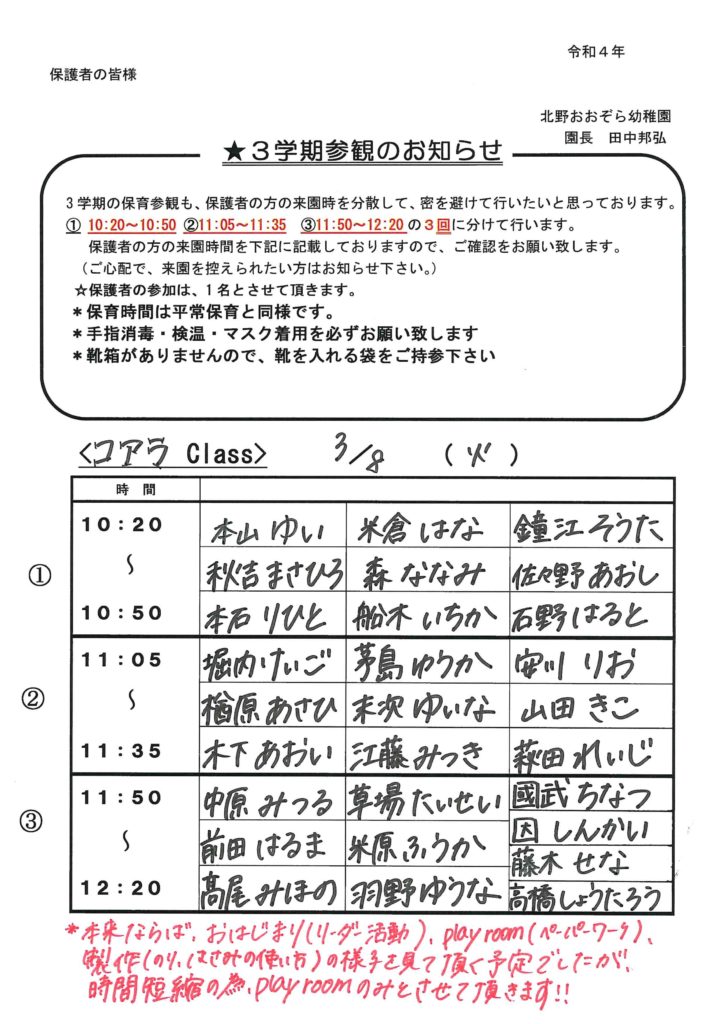 令和４年
保護者の皆様
北野おおぞら幼稚園
園長　田中邦弘
★３学期参観のお知らせ
３学期の保育参観も、保護者の方の来園時を分散して、密を避けて行いたいと思っております。
① 10:20～10:50 ②11:05～11:35 ③11:50～12:20 の３回に分けて行います。
保護者の方の来園時間を下記に記載しておりますので、ご確認をお願い致します。
（ご心配で、来園を控えられたい方はお知らせ下さい。）
☆保護者の参加は、１名とさせて頂きます。
＊保育時間は平常保育と同様です。
＊手指消毒・検温・マスク着用を必ずお願い致します
＊靴箱がありませんので、靴を入れる袋をご持参下さい
<コアラ Class> 3/8 （火）
時　間
① 10：20 ～ 10：50
本山 ゆい 米倉 はな 鐘江 そうた
秋吉 まさひろ 森 ななみ 佐々野 あおし
本石 りひと 船木 いちか 石野 はると
② 11：05 ～ 11：35
堀内 けいご 茅島 ゆうか 安川 りお
楢原 あさひ 末次 ゆいな 山田 きこ
木下 あおい 江藤 みつき 萩田 れいじ
③ 11：50 ～ 12：20
中原 みつる 草場 たいせい 國武 ちなつ
因 しんかい
前田 はるま 米原 ふうか 藤木 せな
髙尾 みほの 羽野 ゆうな 高橋 しょうたろう
＊本来ならば、おはじまり(リーダー活動)、play room(ペーパーワーク)、
製作(のり、はさみの使い方)の様子を見て頂く予定でしたが、
時間短縮の為、play roomのみとさせて頂きます!!